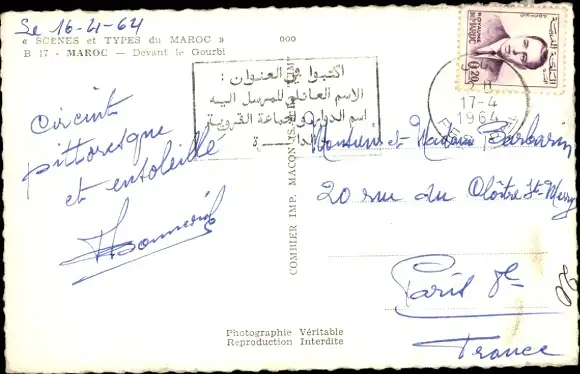 Le 16-4-64
« SCÈNES et TYPES du MAROC »
B 17 - MAROC — Devant le Gourbi
Circuit
pittoresque
et ensoleillé
اكتبوا في العنوان :
الاسم العائلي للمرسل اليه
اسم الدوار والجماعة القروية
ROYAUME DU MAROC
0,20
17-4
1964
COMBIER IMP. MACON
Monsieur et Madame Barbarin
20 rue du Cloître St-Merry
Paris
France
Photographie Véritable
Reproduction Interdite